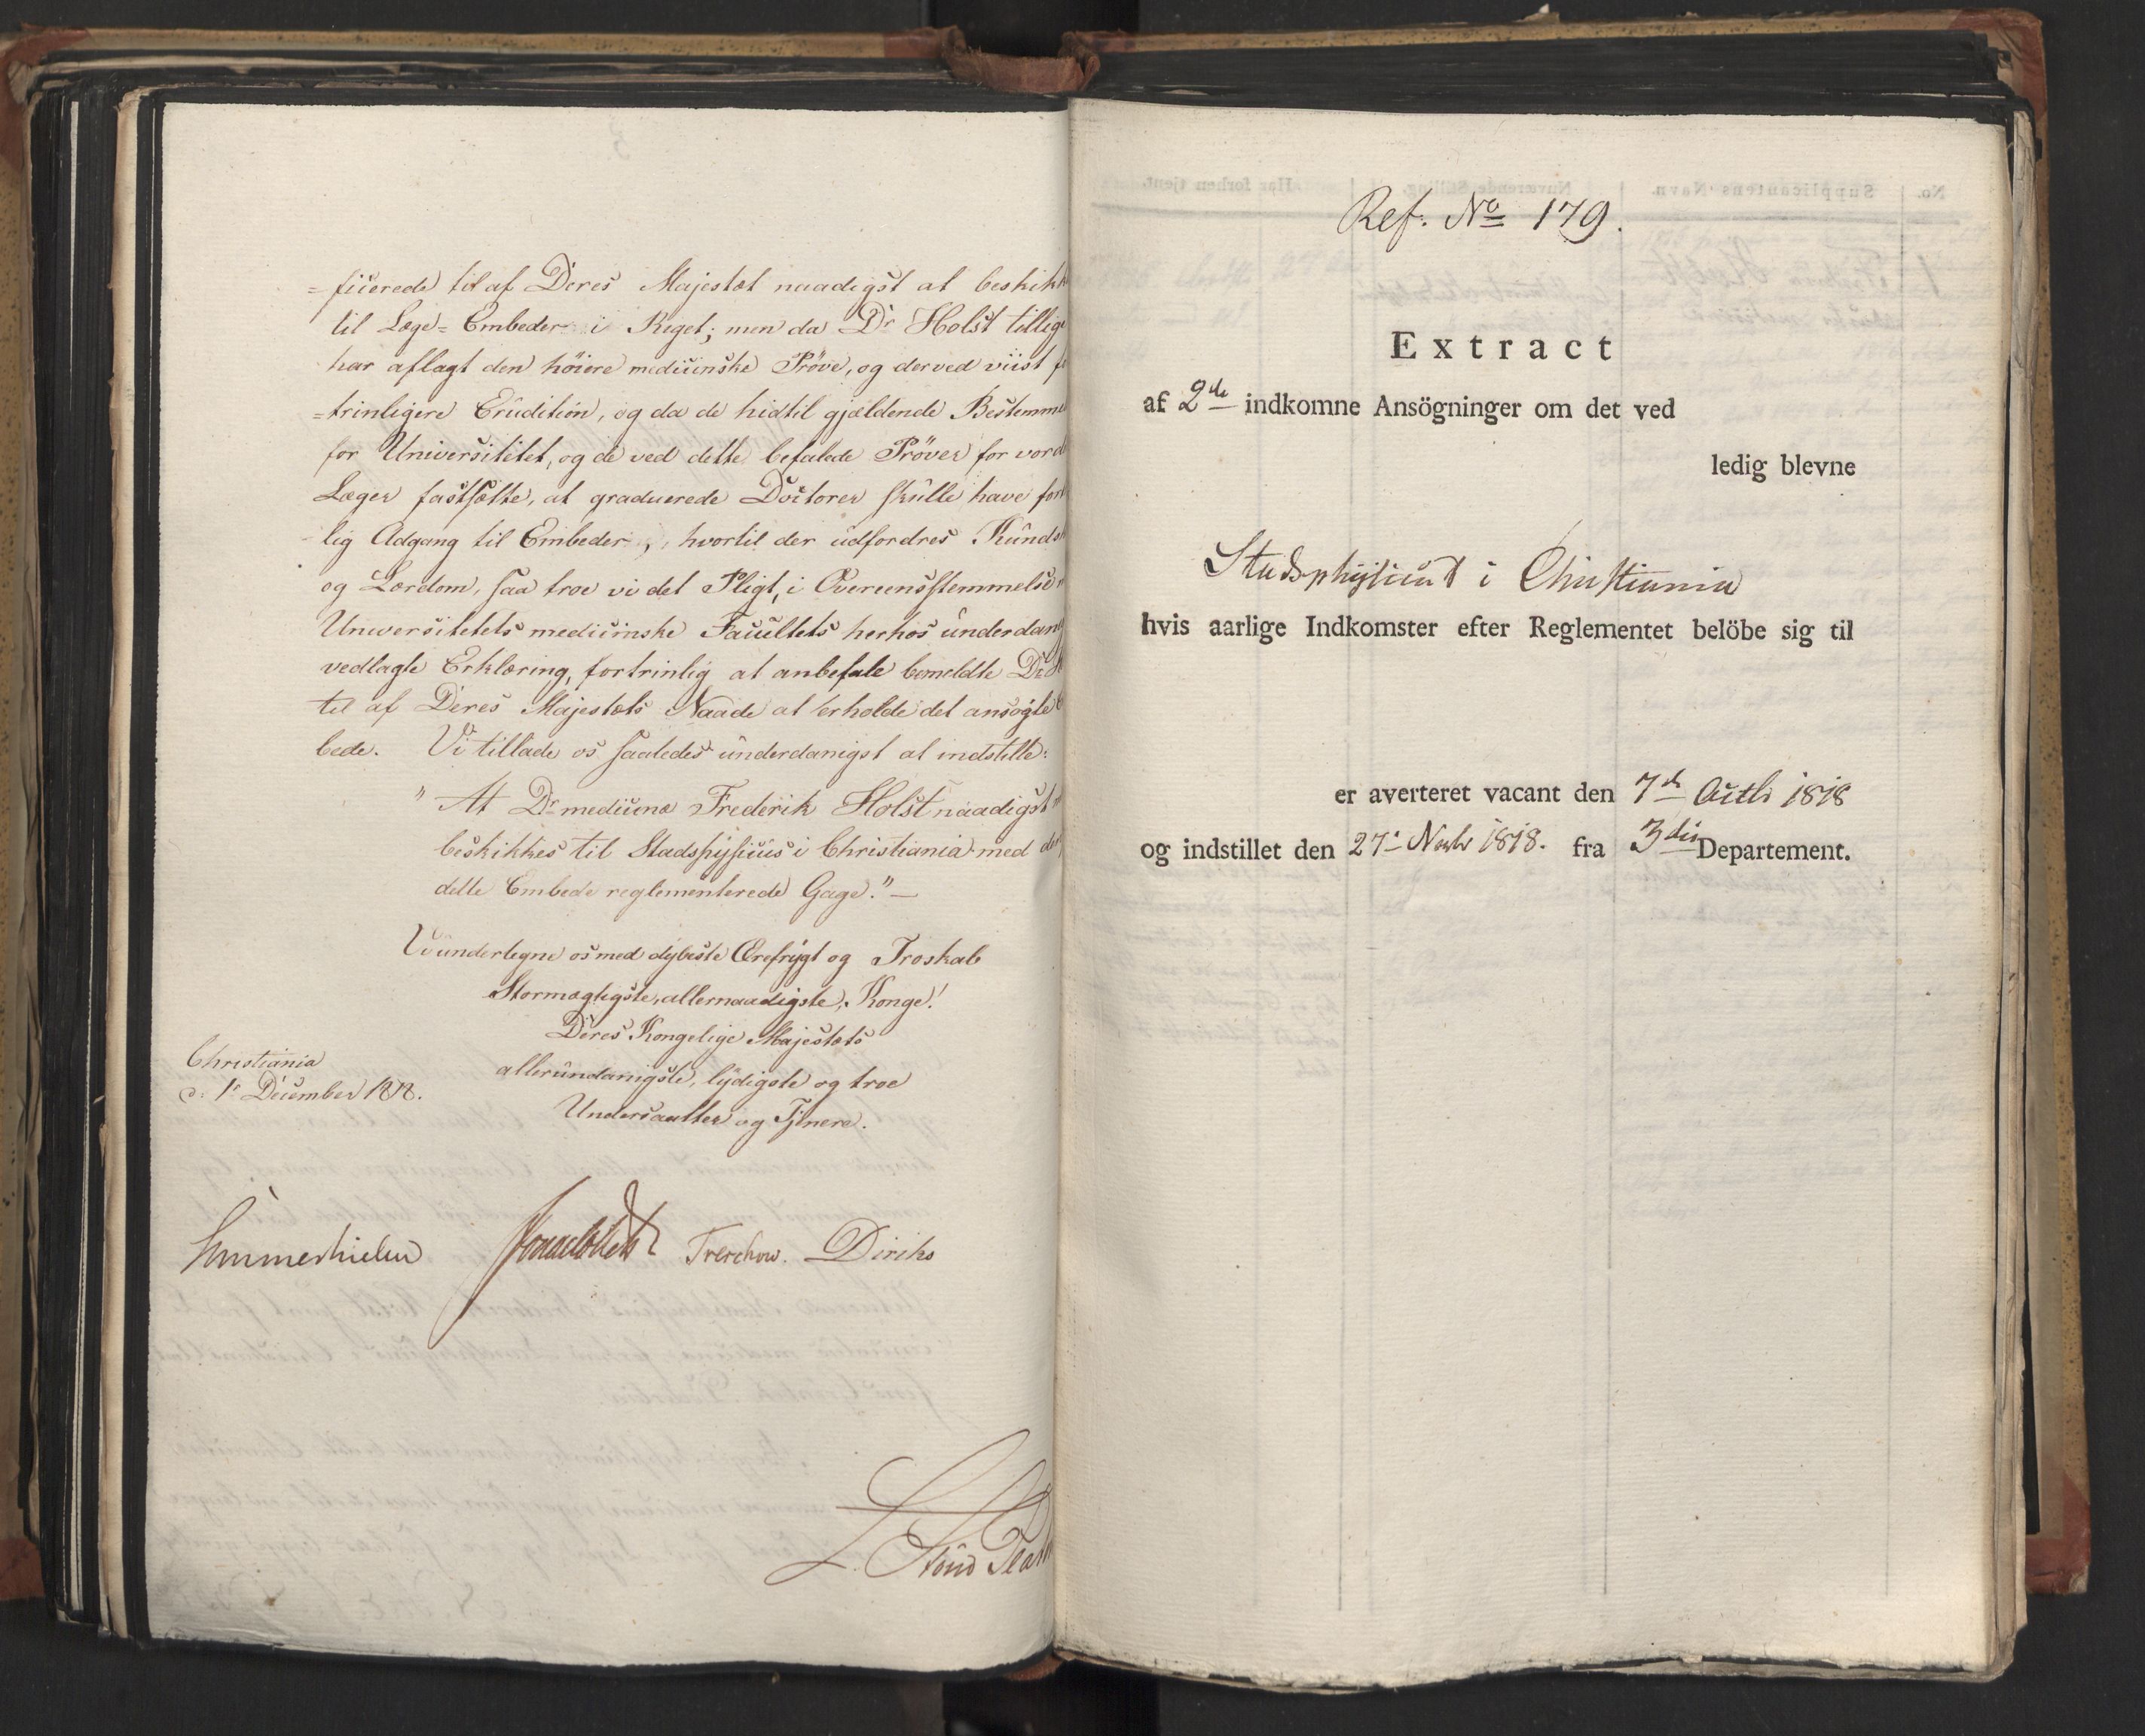 =ficerede til af Deres Majestæt naadigst at beskikk
til Læge=Embeder i Riget; men da Dr Holst tillige
har aflagt den höiere medicinske Pröve, og derved viist
=trinligere Erudition, og da de hidtil gjældende Bestemme
for Universitetet, og de ved dette befalede Pröver for vord
Læger fastsætte, at graduerede Doctorer skulle have for
lig Adgang til Embeder, hvortil der udfordres Kunds
og Lærdom, saa troe vi det Pligt, i Overeensstemmelse
Universitetets medicinske Facultets herhos underdan
vedlagte Erklæring, fortrinlig at anbefale bemeldte Dr
til af Deres Majestæts Naade at erholde det ansögte
bede. Vi tillade os saaledes underdanigst at indstille:
"At Dr medicinæ Frederik Holst naadigst
beskikkes til Stadsphysicus i Christiania med
dette Embede reglementerede Gage." —
Vi undertegne os med dybeste Ærefrygt og Troskab
Stormægtigste, allernaadigste Konge!
Deres Kongelige Majestæts
allerundanigste, lydigste og troe
Undersaatter og Tjenere.
Christiania
d: 1e December 1818.
Sommerhielm Treschow. Diriks
Ref. No 179.
Extract
af 2de indkomne Ansögninger om det ved
ledig blevne
Stadsphysicat i Christiania
hvis aarlige Indkomster efter Reglementet belöbe sig til
er averteret vacant den 7de Octbr 1818
og indstillet den 27e Novbr 1818. fra 3die Departement.